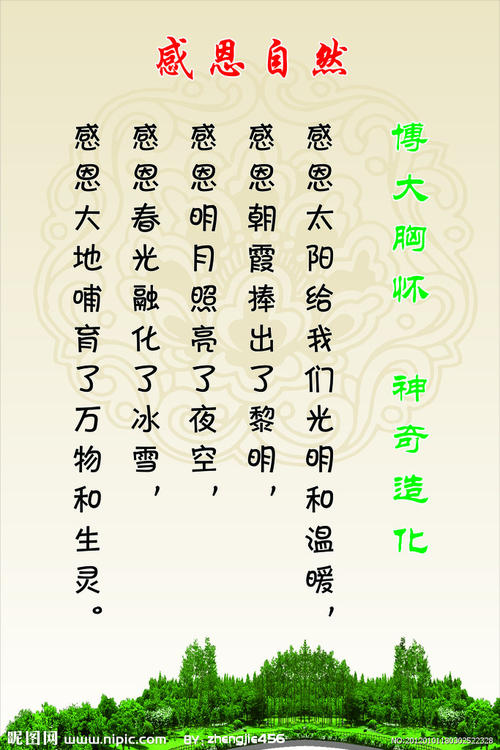 感恩自然
博大胸怀 神奇造化
感恩太阳给我们光明和温暖,
感恩朝霞捧出了黎明,
感恩明月照亮了夜空,
感恩春光融化了冰雪,
感恩大地哺育了万物和生灵。
昵图网 www.nipic.com BY: zhengjie456